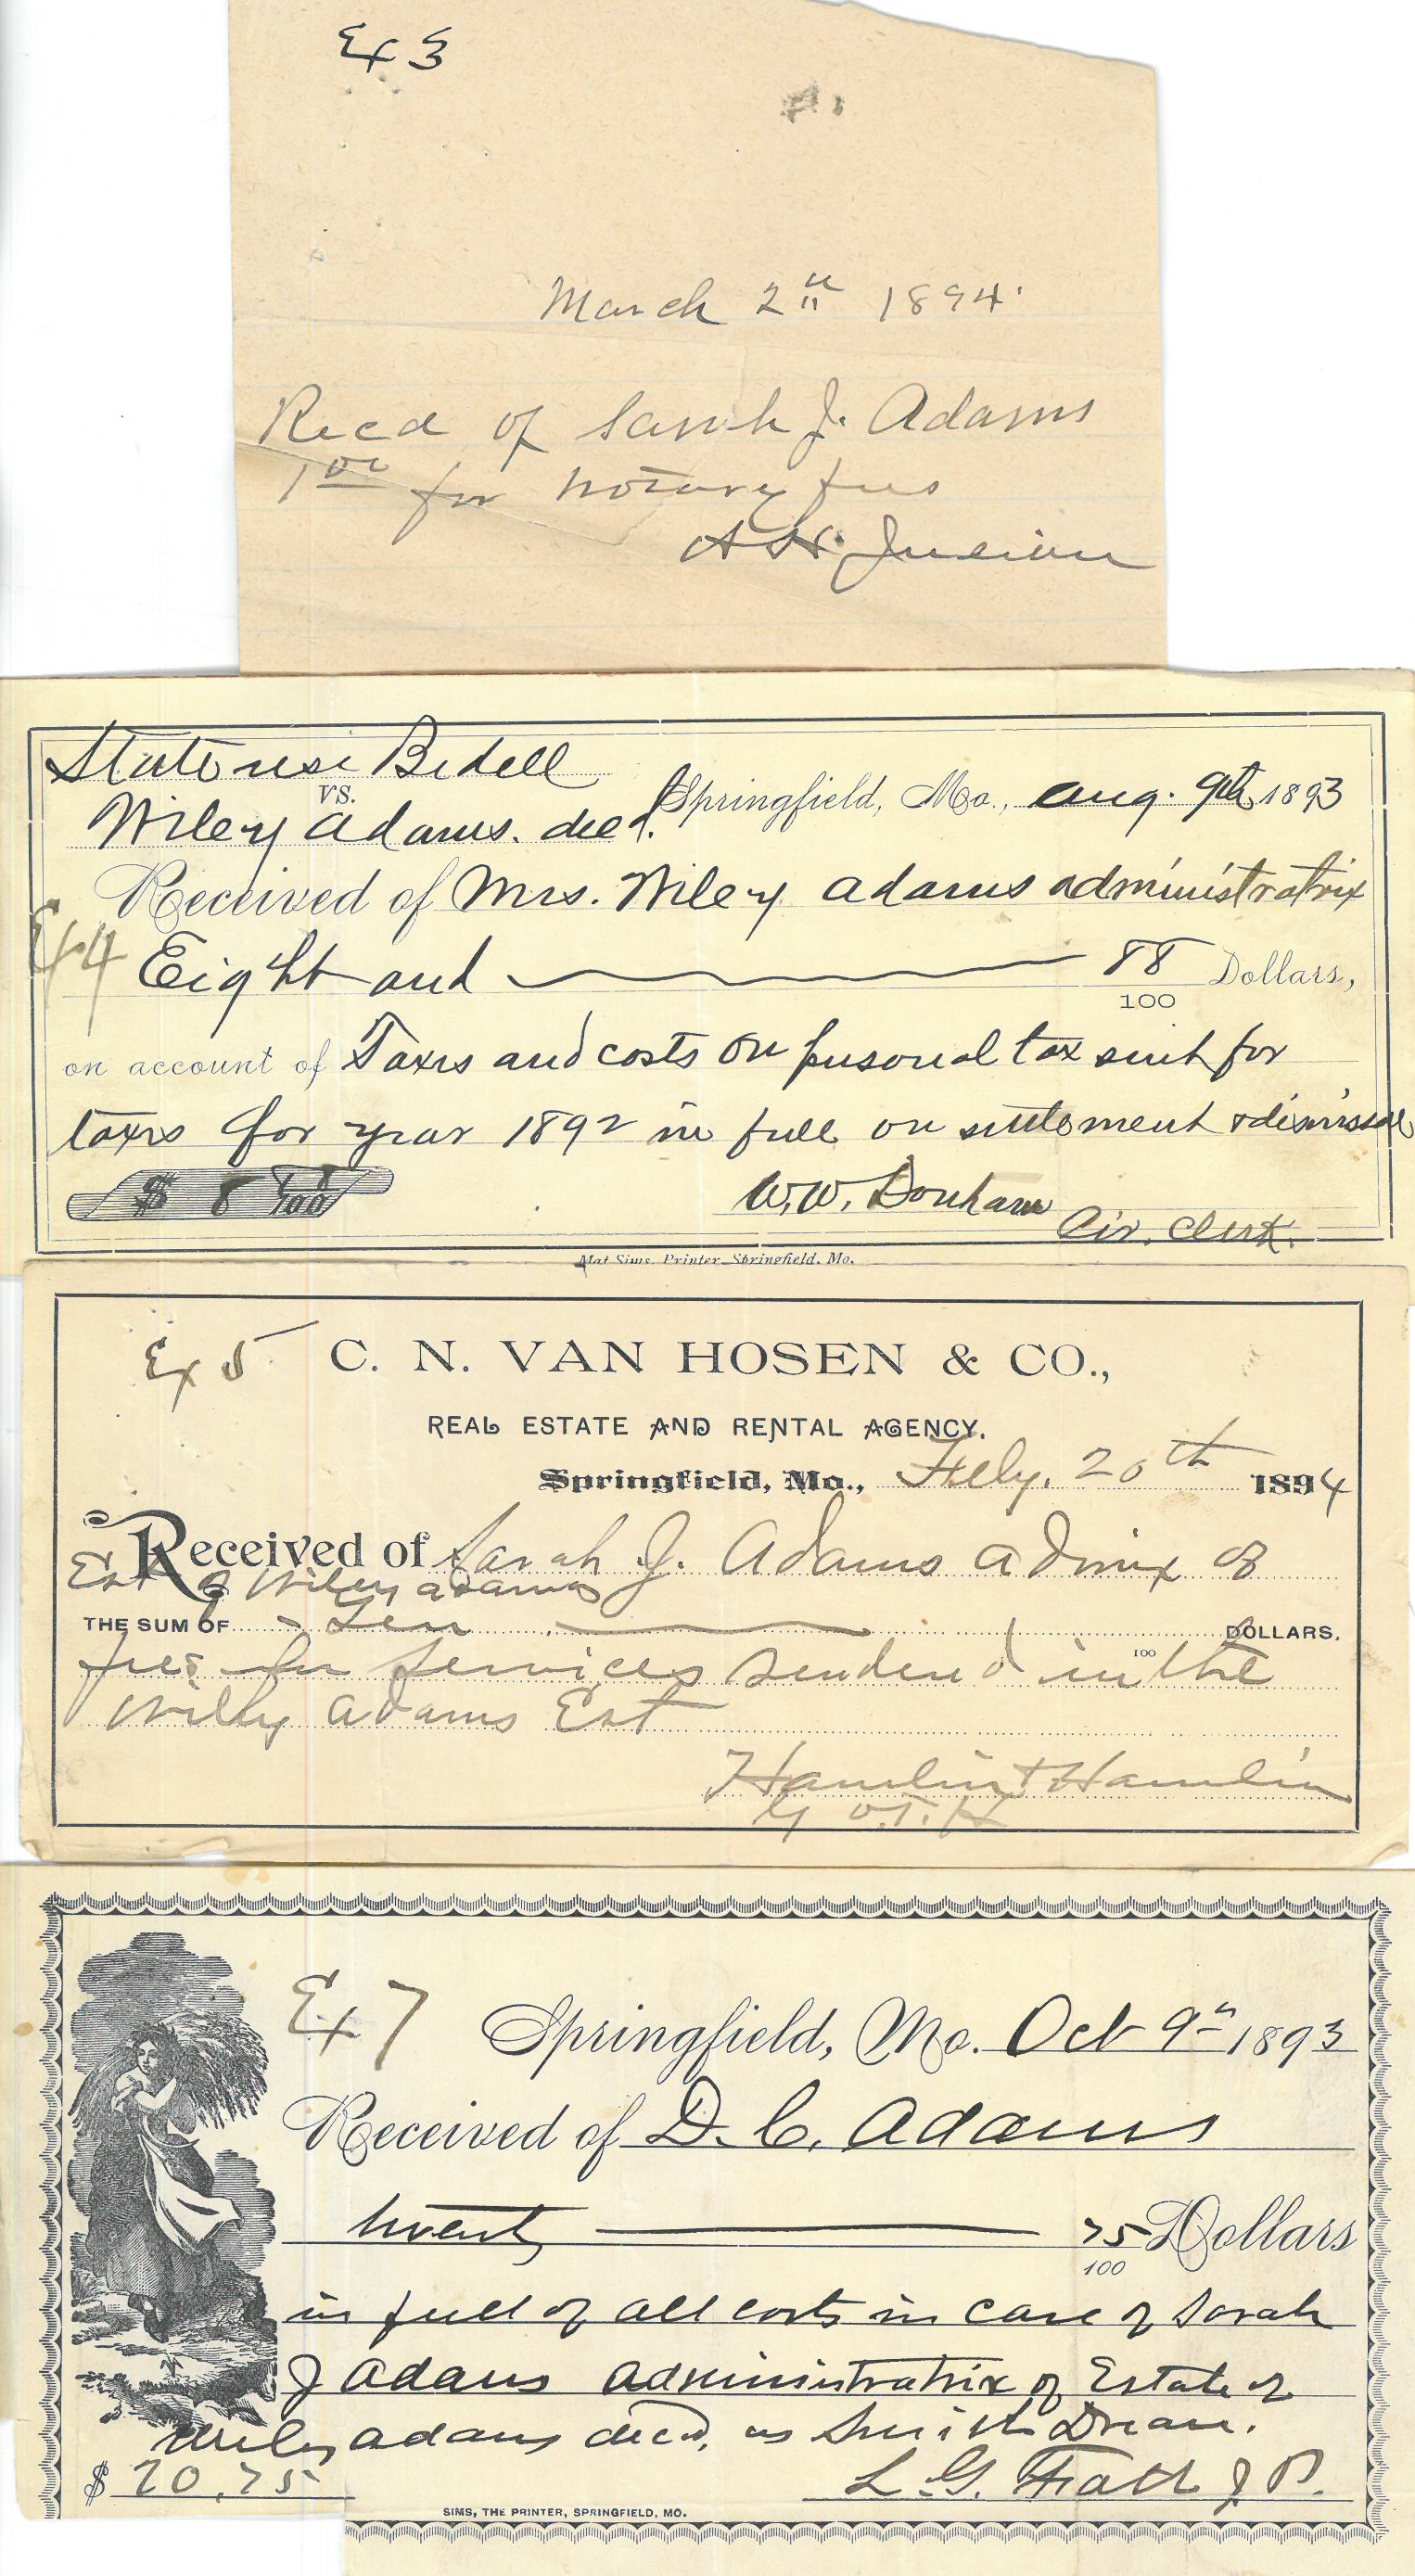 Ex 3
March 2nd 1894
Recd of Sarah J. Adams
1 00 for Notary fees
A H Julian
State use Bedell
VS.
Wiley Adams. decd. Springfield, Mo., Aug. 9th 1893
Received of Mrs. Wiley Adams administratrix
Ex 4
Eight and 88/100 Dollars,
on account of Taxes and costs on personal tax suit for
taxes for year 1892 in full on settlement & dismissal
$ 8 88/100
W.W. Donham Cir. Clerk.
Mat Sims, Printer, Springfield, Mo.
Ex 5 C. N. VAN HOSEN & CO.,
REAL ESTATE AND RENTAL AGENCY.
Springfield, Mo., Feby. 20th 1894
Received of Sarah J. Adams admix of
Est of Wiley Adams
THE SUM OF Ten 100 DOLLARS.
fees for services rendered in the
Wiley Adams Est
Hamlin & Hamlin
Ex 7 Springfield, Mo. Oct 9th 1893
Received of D. C. Adams
Twenty 75/100 Dollars
in full of all costs in case of Sarah
J Adams administratrix of Estate of
Wiley Adams decd, vs Smith
$ 20.75
L. G. J P.
SIMS, THE PRINTER, SPRINGFIELD, MO.